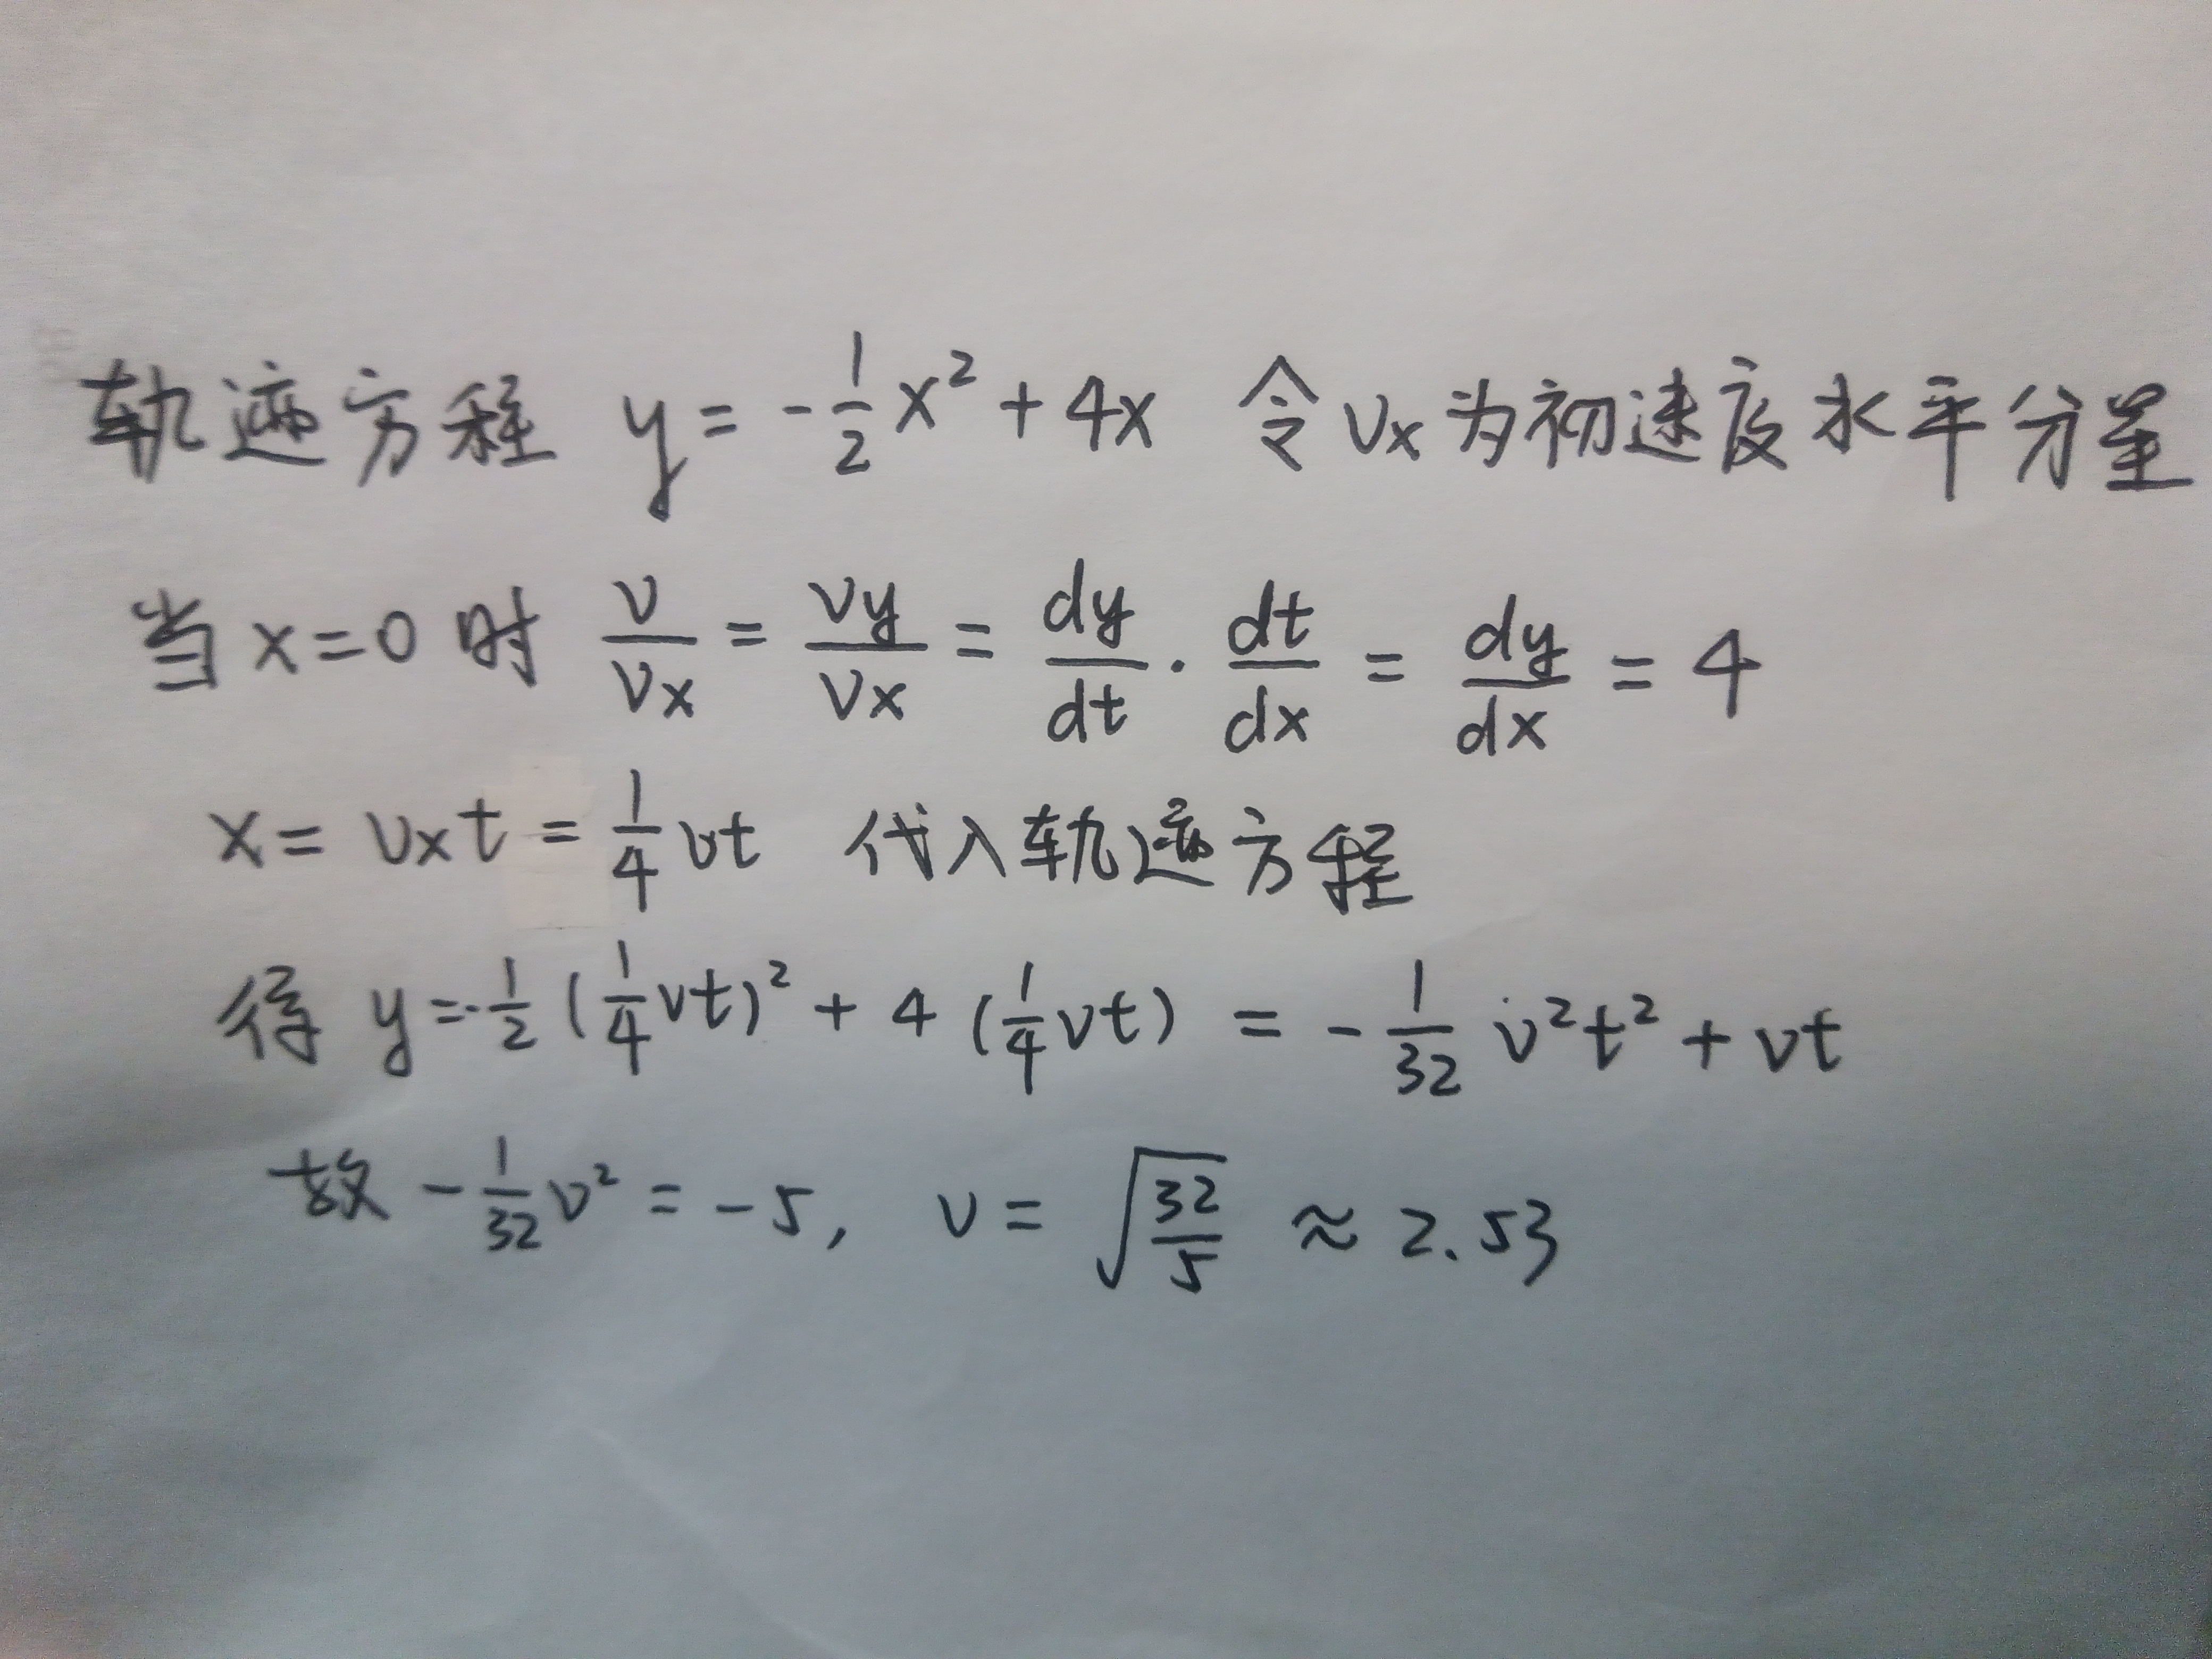 轨迹方程 y = -1/2 x² + 4x 令 vx 为初速度水平分量
当 x=0 时 v/vx = vy/vx = dy/dt · dt/dx = dy/dx = 4
x = vxt = 1/4 vt 代入轨迹方程
得 y = -1/2 (1/4 vt)² + 4 (1/4 vt) = - 1/32 v²t² + vt
故 - 1/32 v² = -5, v = √(32/5) ≈ 2.53